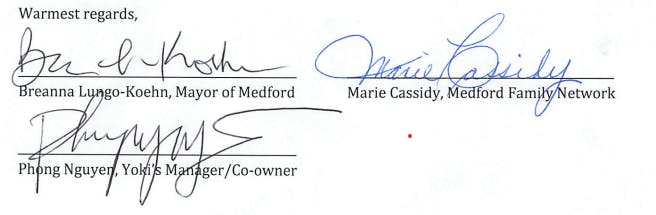 Warmest regards,
Marie Cassidy
Breanna Lungo-Koehn, Mayor of Medford
Marie Cassidy, Medford Family Network
Phong Nguyen, Yoki's Manager/Co-owner